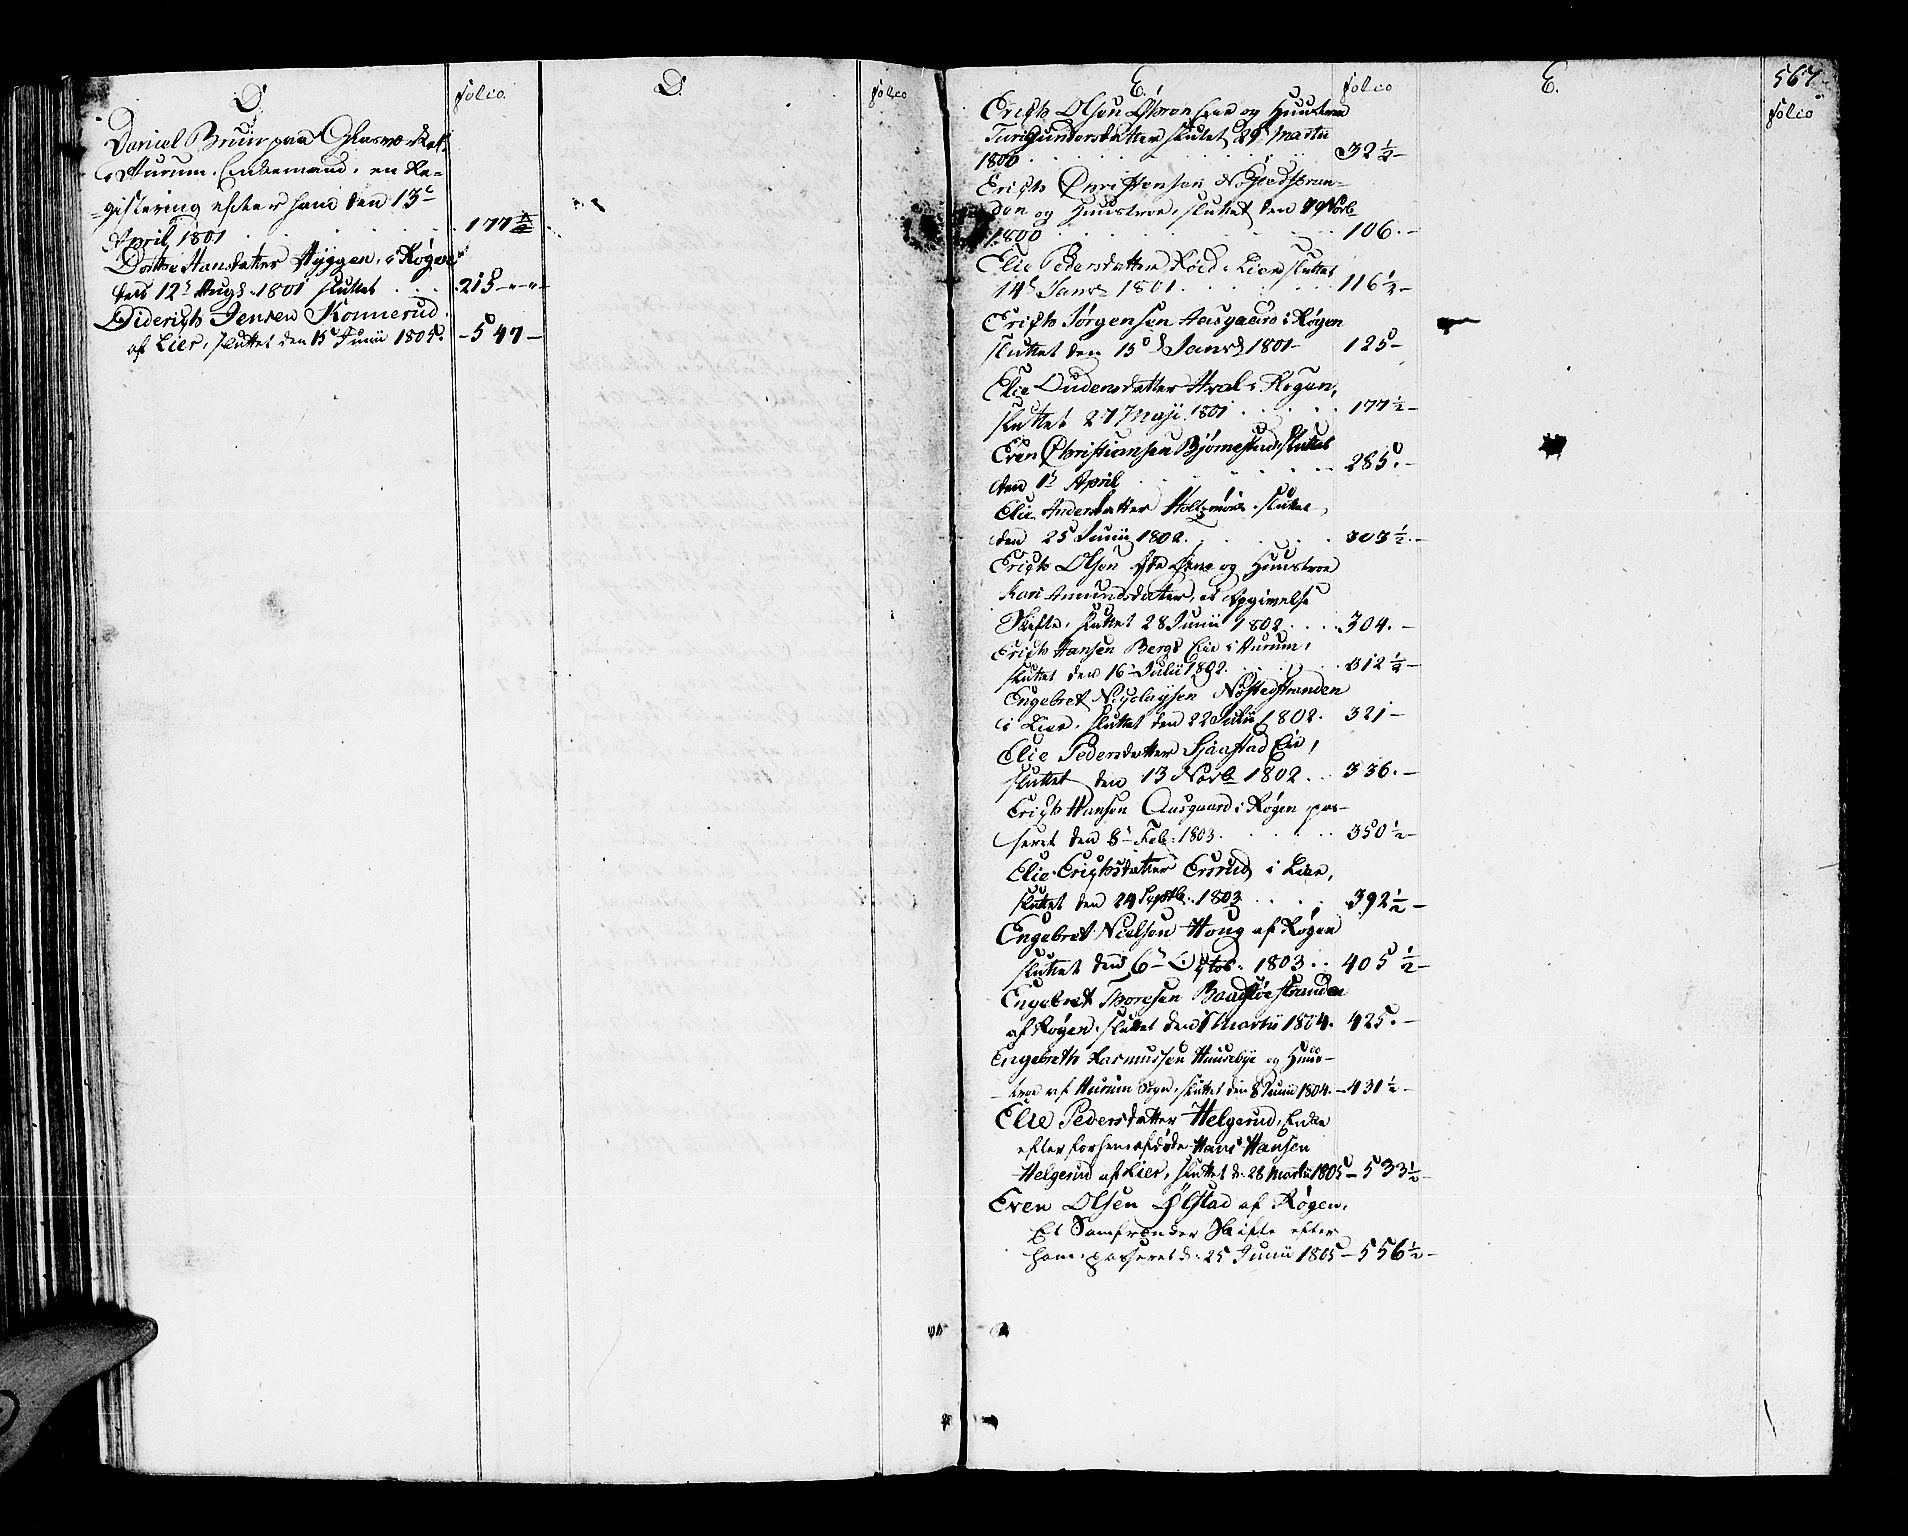 D.
folio
D.
folio
Daniel Bruun paa Glasværket
i Hurum. Enkemand, en Re-
gistering efter ham den 13de
April 1801 177 ½
Dorthe Hansdatter Hyggen, i Røgen
den 12te Augs. 1801 sluttet 215
Diderich Jensen Konnerud
af Lier, sluttet den 15 Junii 1805. 547
567
E.
folio
E.
folio
Erich Olsen og Huustroe
Turi Gundersdatter sluttet 29 Martii
1800 32 ½
Erich Christensen Nøstedstran-
den og Huustroe, sluttet den Novb
1800 106.
Elie Pedersdatter Røed i Lier sluttet
14de Janr 1801 116 ½
Erich Jørgensen Aasgaard i Røgen
sluttet den 15de Janr 1801 125
Elie Oudensdatter Hval i Røgen,
sluttet 27 Maji 1801 177 ½
Even Christiansen Bjørnestad sluttet
den 1te April 285.
Elie Andersdatter sluttet
den 25 Junii 1802. 303 ½
Erich Olsen og Huustroe
Kari Amundsdatter, et Opgivelse
Skifte, sluttet 28 Junii 1802 304.
Erich Hansen Bergs Eie i Hurum,
sluttet den 16 Julii 1802 312 ½
Engebret Nicolaysen Nøstedstranden
i Lier, sluttet den 22 Julii 1802. 321
Elie Pedersdatter Sjaastad Eie,
sluttet den 13 Novb 1802 336.
Erich Hansen Aasgaard i Røgen pas-
seret den 8de Feb: 1803. 350 ½
Elie Erichsdatter Ersrud i Lier,
sluttet den 24 Septb. 1803 392 ½
Engebret Nielsen Houg af Røgen
sluttet den 6te Octob. 1803 405 ½
Engebret Thoresen Baadstøestranden
af Røgen, sluttet den Martii 1804. 425.
Engebreth Rasmussen Huusebye og Huus-
troe af Hurum Sogn, sluttet den 8 Junii 1804. 431 ½
Elie Pedersdatter Helgerud, Enke
efter forhen afdøde Hans Hansen
Helgerud af Lier, sluttet d. 28 Martii 1805 533 ½
Even Olsen Ølstad af Røgen,
Et Samfrænder Skifte efter
ham passeret d. 25 Junii 1805 556 ½